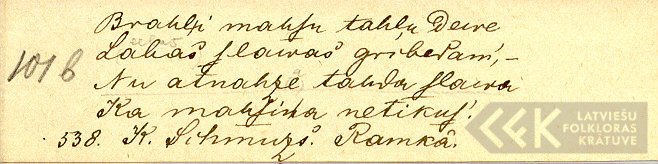 Brahļi mahsu tahļu dewe
Labas slawas gribedami, –
Nu atnahze tahda slawa
Ka mahsiņa netikusi.
101 b
538. K. Schmuzs. Ramkâ.
LATVIEŠU
FOLKLORAS
KRĀTUVE